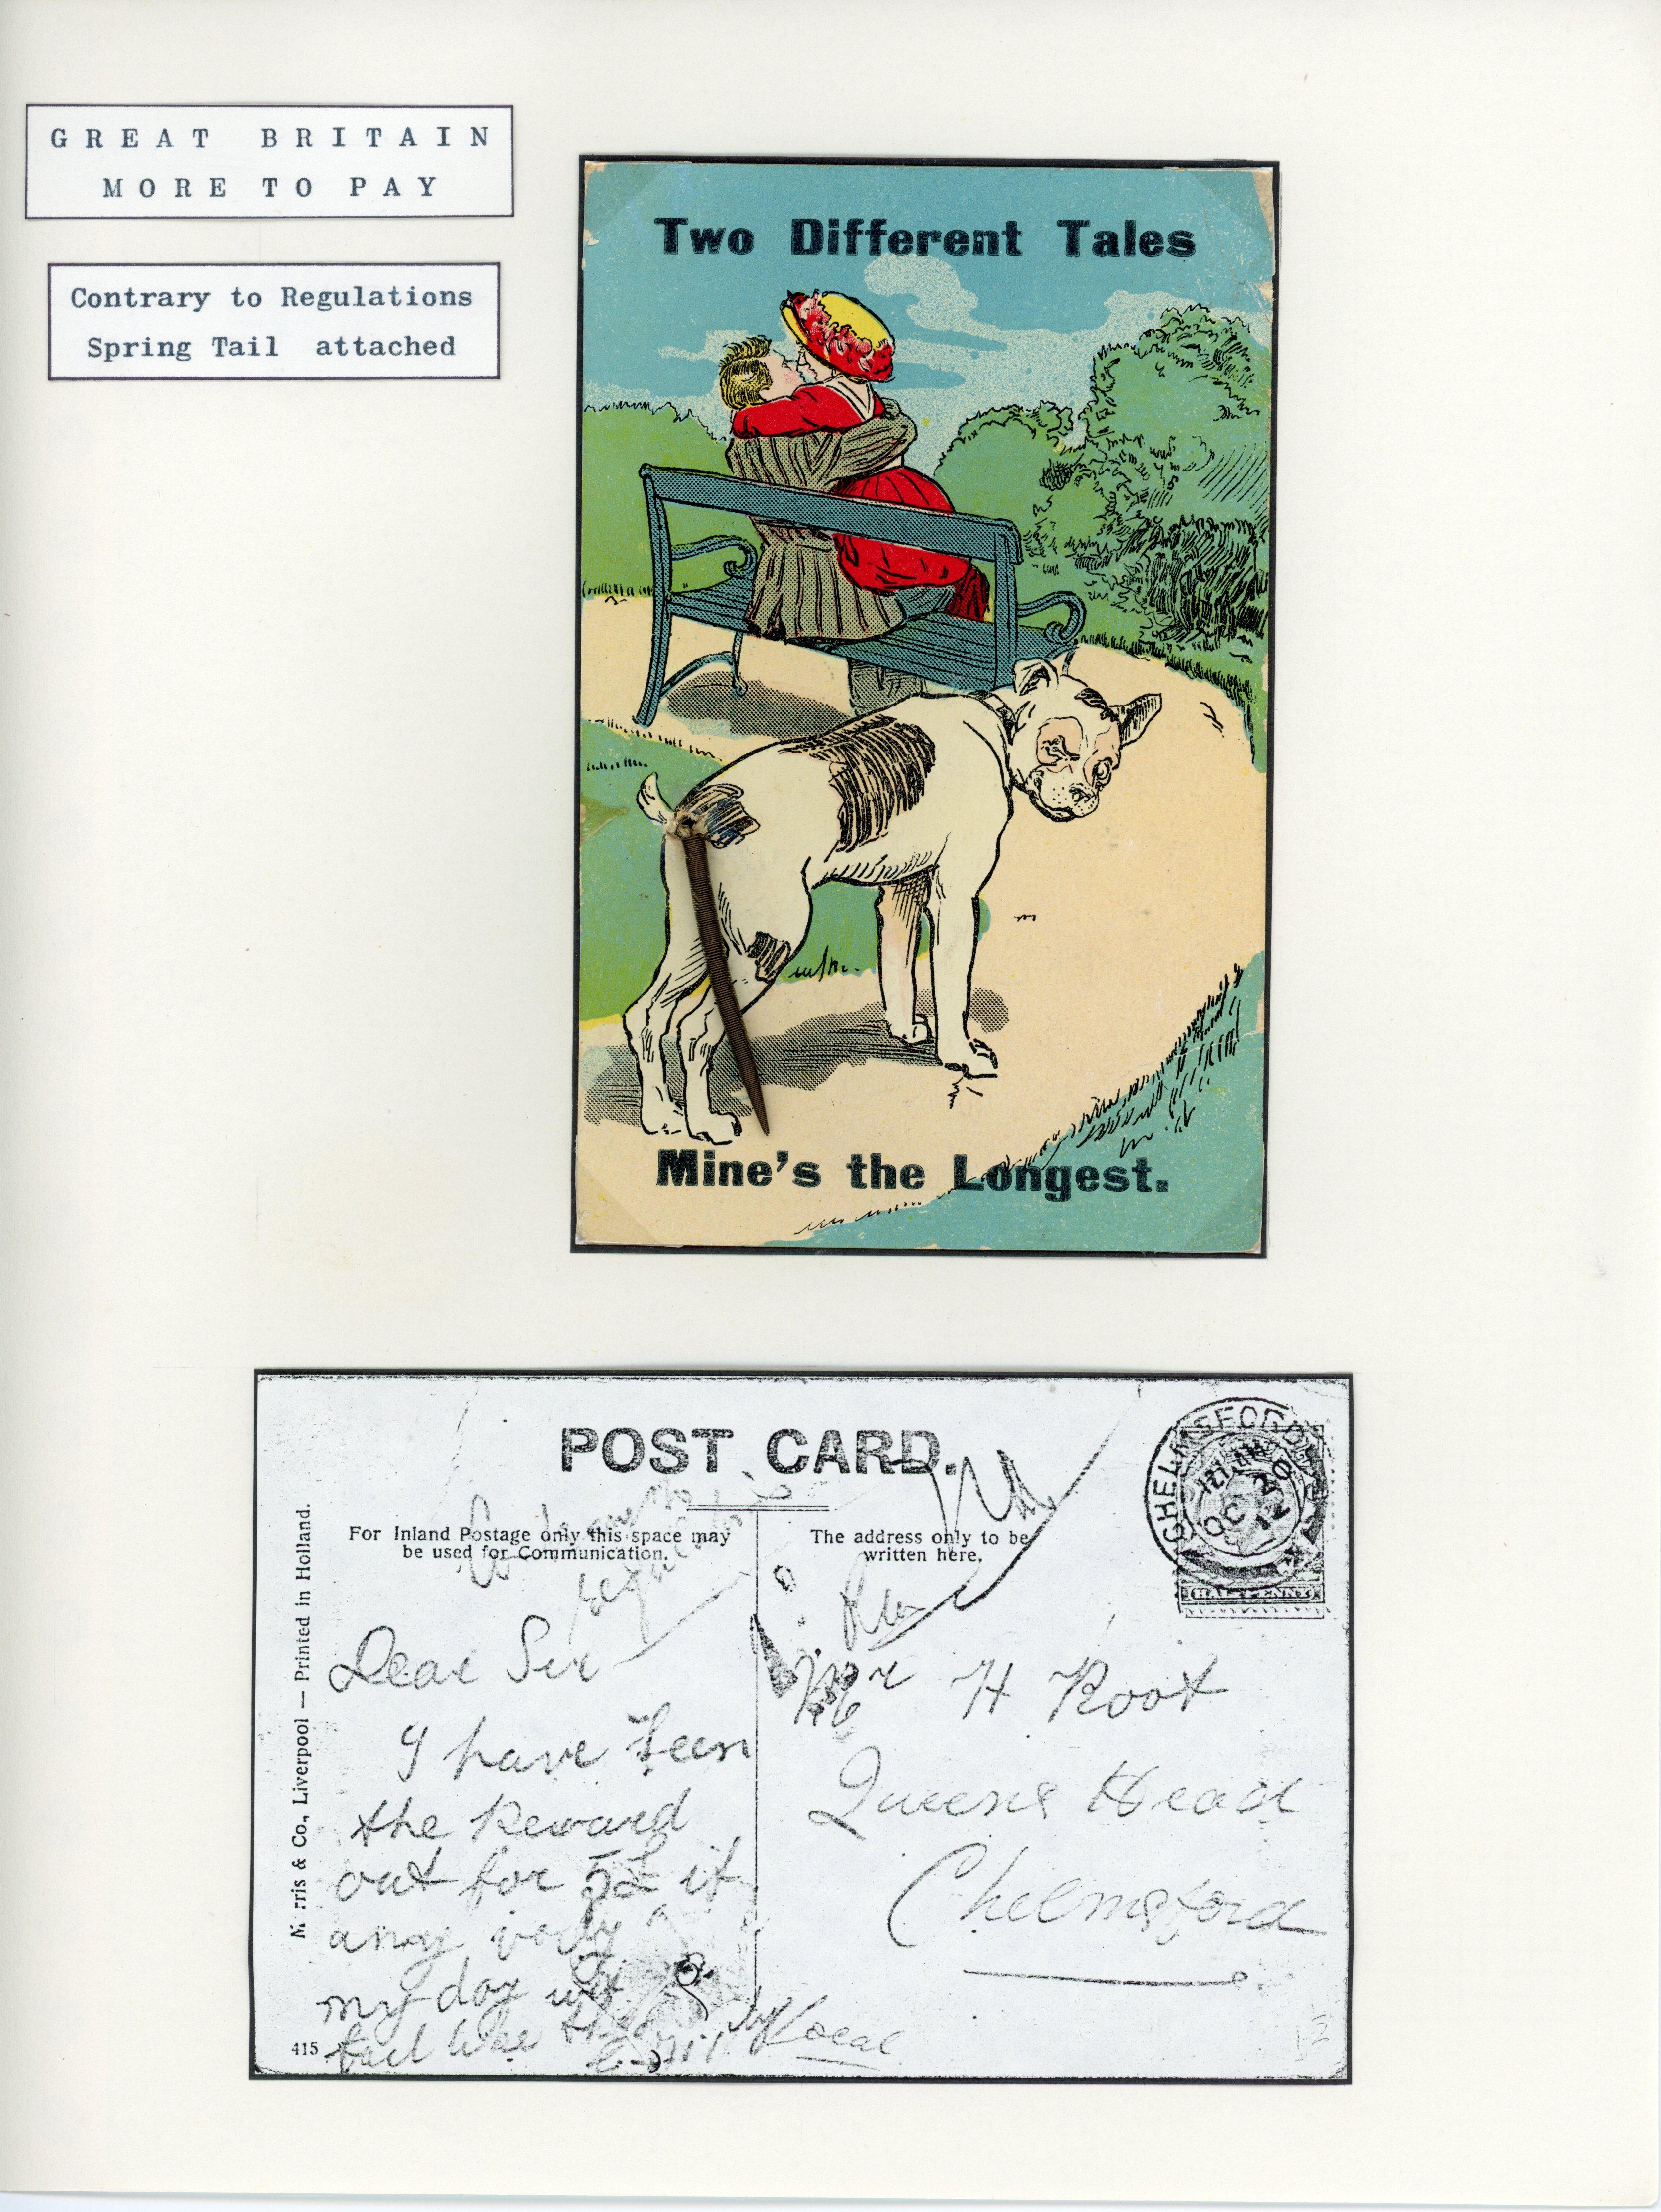 GREAT BRITAIN
MORE TO PAY
Contrary to Regulations
Spring Tail attached
Two Different Tales
Mine's the Longest.
POST CARD.
For Inland Postage only this space may
be used for Communication.
The address only to be
written here.
M rris & Co., Liverpool — Printed in Holland.
415
CHELMSFORD
OC 20
12
HALFPENNY
Contrary to
Regulations
Dear Sir
I have seen
the Reward
out for 5£ if
any body
my dog
tail like
Mr H Root
Queens Head
Chelmsford
Local